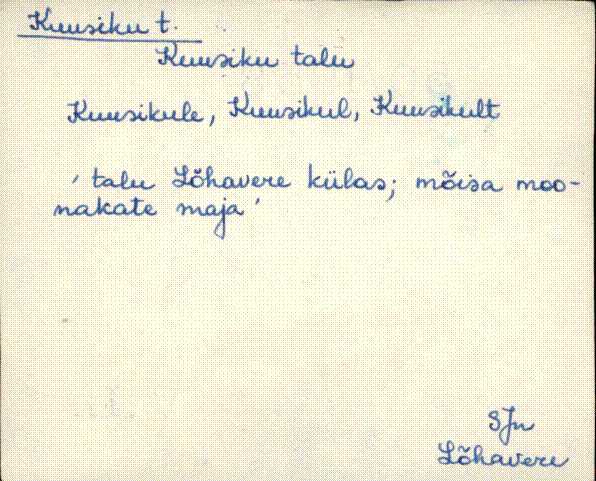 Kuusiku t.
Kuusiku talu
Kuusikule, Kuusikul, Kuusikult
' talu Lõhavere külas; mõisa moo-
nakate maja '
SJn
Lõhavere